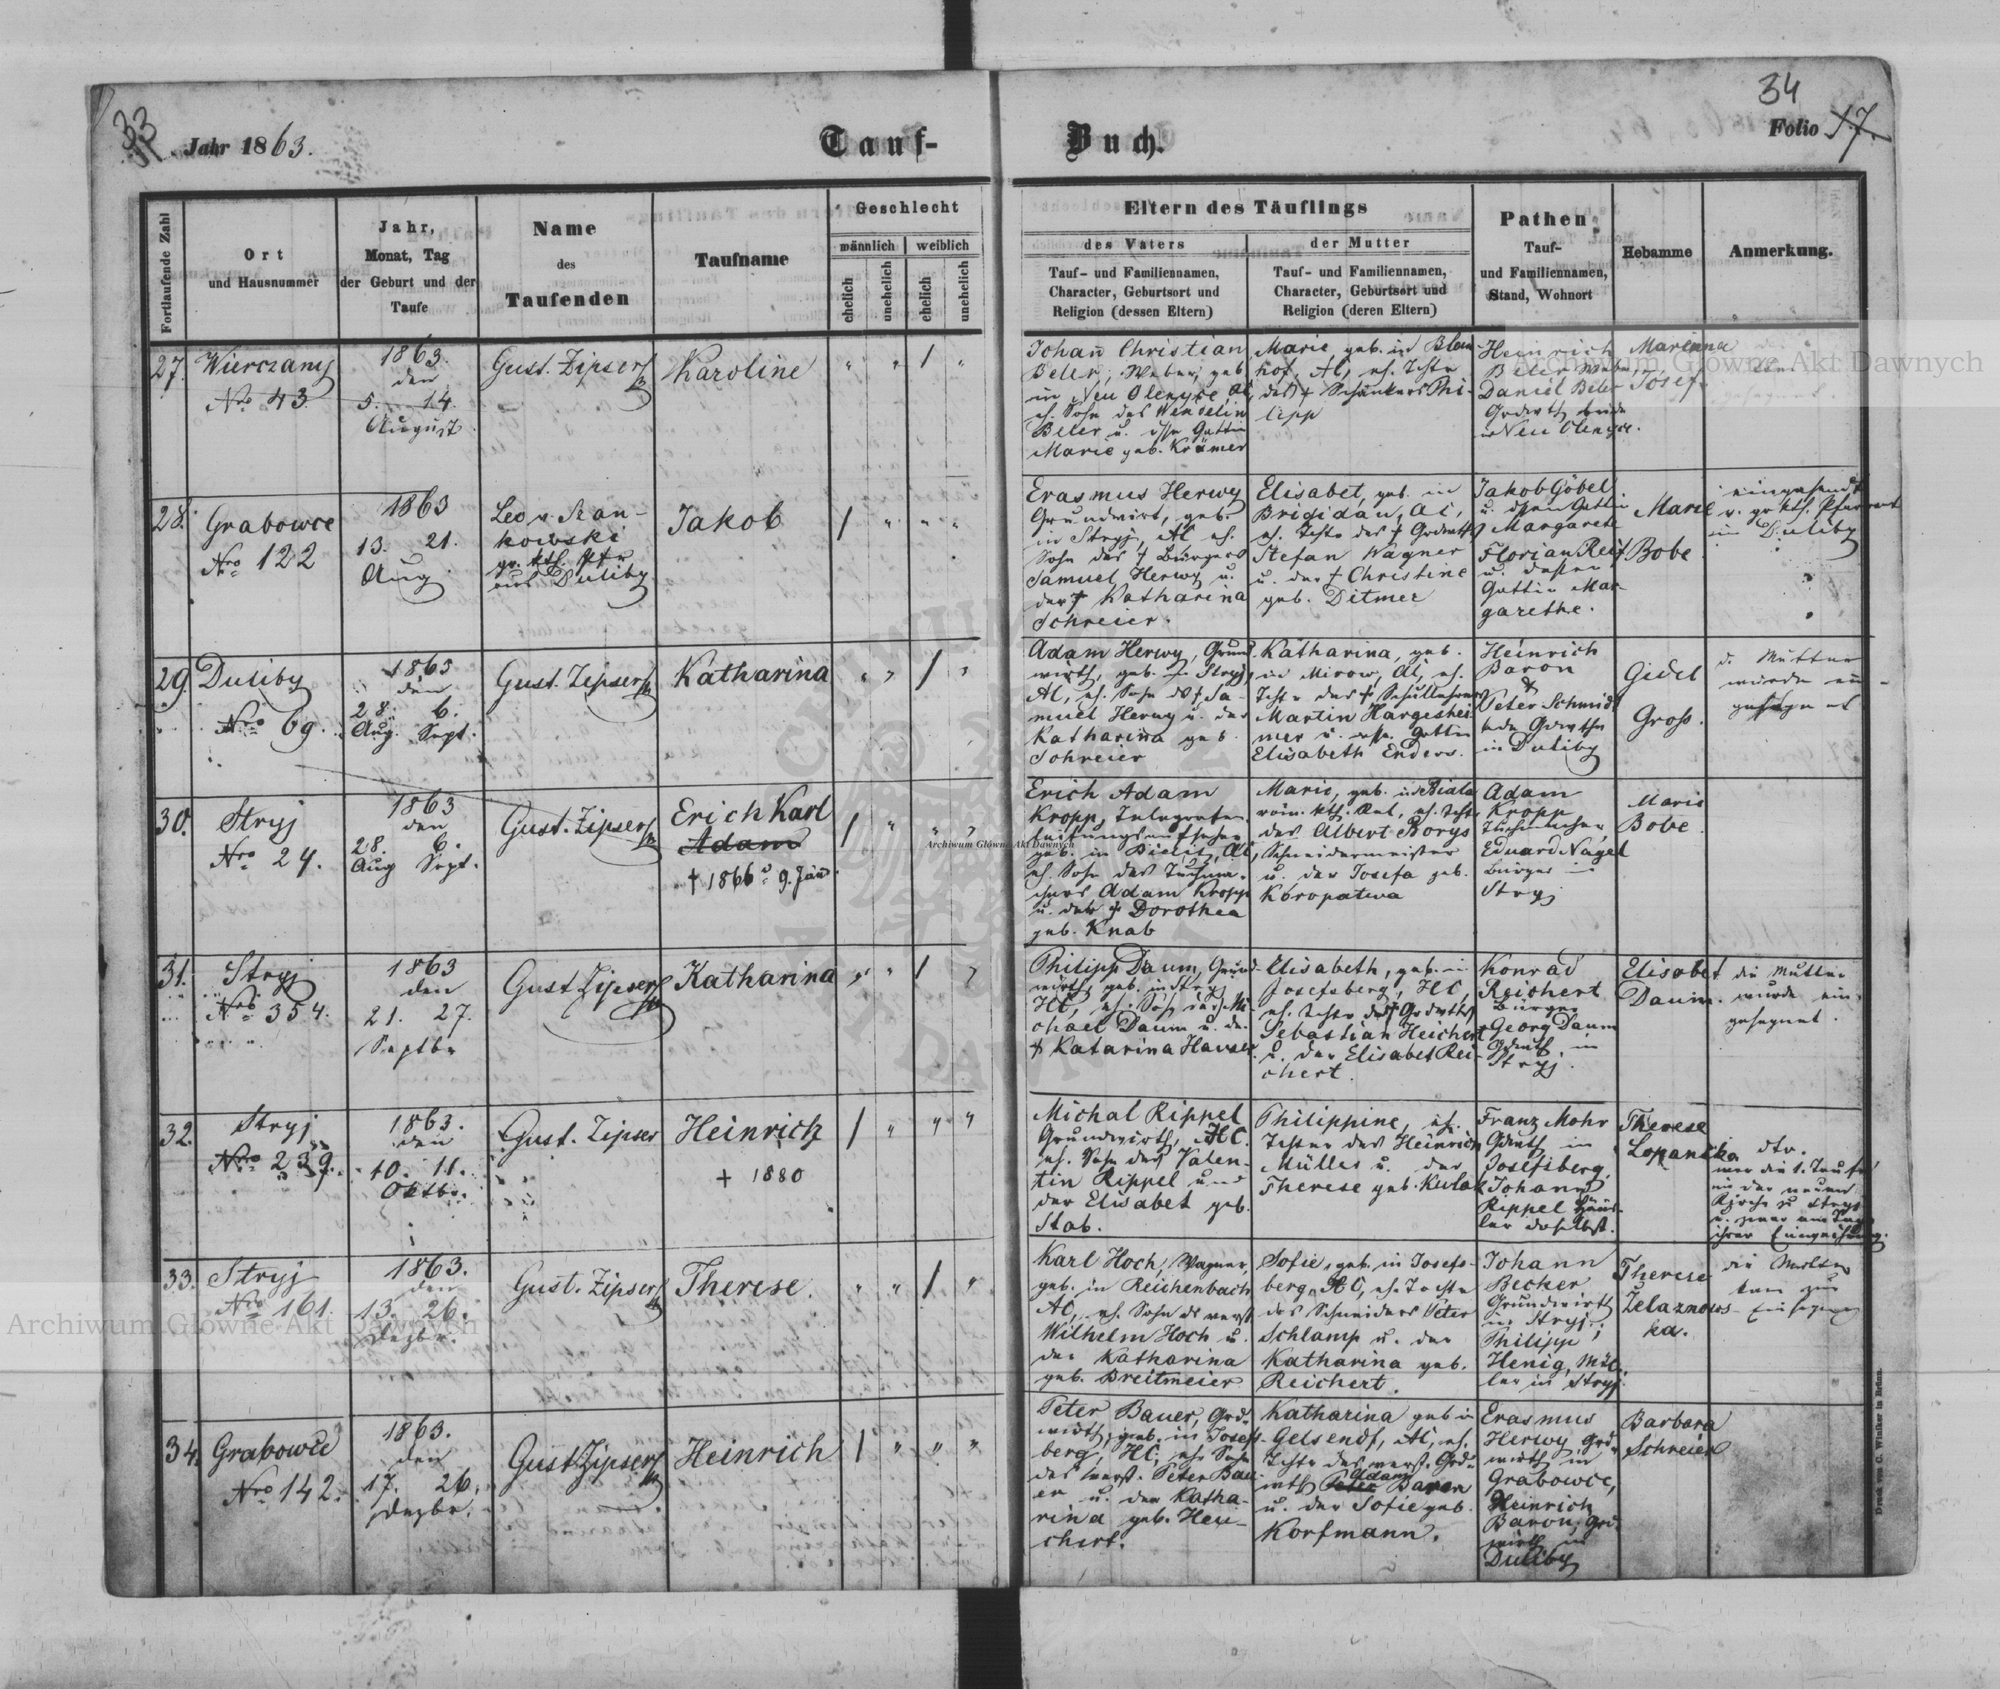 33
34
Jahr 1863.
Tauf-
Buch.
Folio 17.
Fortlaufende Zahl
Ort
und Hausnummer
Jahr,
Monat, Tag
der Geburt und der
Taufe
Name
des
Taufenden
Taufname
Geschlecht
männlich
weiblich
ehelich
unehelich
ehelich
unehelich
Eltern des Täuflings
des Vaters
Tauf- und Familiennamen,
Character, Geburtsort und
Religion (dessen Eltern)
der Mutter
Tauf- und Familiennamen,
Character, Geburtsort und
Religion (deren Eltern)
Pathen
Tauf-
und Familiennamen,
Stand, Wohnort
Hebamme
Anmerkung.
27.
Wierczany
Nro 43.
1863.
den
5. 14.
August
Gust. Zipser
Karoline
" " / "
Johann Christian
Beler, Weber, geb.
in Neu Olexyce, AC,
eh. Sohn des Wendelin
Beler u. Gattin
Marie geb. Krämer
Marie, geb. in
AC, eh.
des
lipp
Heinrich
Beler Weber,
Daniel Beler
Grdwth beide
in Neu
Marianna
Josef
28.
Grabowce
Nro 122
1863
13. 21.
Aug.
Leo v. Szan-
kowski
gr. kth. Pfr
aus Duliby
Jakob
/ " " "
Erasmus Herwy
Grundwirt, geb.
in Stryj, AC eh.
Sohn des † Bürgers
Samuel Herwy u.
der † Katharina
Schreier.
Elisabet, geb. in
Brigidau, AC,
eh. Tchtr des † Grdwths
Stefan Wagner
u. der † Christine
geb. Ditmer
Jakob Göbel
u. dssen Gattin
Margarete
Florian Reis
u. dessen
Gattin Mar-
garethe.
Marie
Bobe
eingesendet
v. gr kth. Pfarramt
in Duliby
29.
Duliby
Nro 69.
1863
den
28. 6.
Aug. Sept.
Gust. Zipser
Katharina
" " / "
Adam Herwy, Grund
wirth, geb. in Stryj,
AC, eh. Sohn ds † Sa-
muel Herwy u. der
Katharina geb.
Schreier
Katharina, geb.
in Mirow, AC, eh.
Tchtr des † Schullehrers
Martin Hargeshei-
mer u. Gattin
Elisabeth Enders.
Heinrich
Baron
&
Peter Schmidt
beide Grdwthe
in Duliby
Gidel
Groß.
d. Mutter
wurde ein-
gesegnet
30.
Stryj
Nro 24.
1863
den
28. 6.
Aug Sept.
Gust. Zipser
Erich Karl
Adam
† 1866 9. Jän
/ " " "
Erich Adam
Kropp, Telegrafen
leitungsaufseher
geb. in Bielitz, AC,
eh. Sohn des Tuchma-
chers Adam Kropp
u. der † Dorothea
geb. Knab
Marie, geb. in Biala
röm. kth. Rel, eh. Tchtr
des Albert Borys
Schneidermeister
u. der Josefa geb.
Koropatwa
Adam
Kropp
Tuchmacher,
Eduard Nagel
Bürger in
Stryj
Marie
Bobe
31.
Stryj
Nro 354.
1863
den
21. 27.
Septbr
Gust Zipser
Katharina
" " / "
Philipp Daum, Grund-
wirth, geb. in Stryj
HC, eh. Sohn des Mi-
chael Daum u. der
† Katarina Hauser
Elisabeth, geb. in
Josefsberg, HC,
eh. Tchtr des † Grdwths
Sebastian Reichert
u. der Elisabet Rei-
chert.
Konrad
Reichert
Bürger
Georg Daum
Grdwth in
Stryj.
Elisabet
Daum.
die Mutter
wurde ein-
gesegnet.
32.
Stryj
Nro 239.
1863.
den
10. 11.
Oktbr.
Gust. Zipser
Heinrich
† 1880
/ " " "
Michal Rippel
Grundwirth, HC.
eh. Sohn des Valen-
tin Rippel und
der Elisabet geb.
Stab.
Philippine, eh.
Tchter des Heinrich
Müller u. der
Therese geb. Kulak
Franz Mohr
Grdwth in
Josefsberg,
Johann
Rippel Häus-
ler daselbst.
Therese
Lopanska
dtr.
war die 1. Taufe
in der neuen
Kirche zu Stryj
u. zwar am Tage
ihrer Einweihung.
33.
Stryj
Nro 161.
1863.
den
13. 26.
Dezbr.
Gust. Zipser
Therese.
" " / "
Karl Hoch, Wagner,
geb. in Reichenbach
AC, eh. Sohn ds verst
Wilhelm Hoch u.
der Katharina
geb. Breitmeier
Sofie, geb. in Josefs-
berg, HC, eh. Tochter
des Schneiders Peter
Schlamp u. der
Katharina geb.
Reichert.
Johann
Becker
Grundwirth
in Stryj;
Philipp
Henig, Mül-
ler in Stryj.
Therese
Zelaznows-
ka.
die Mutter
kam zur
Einsegng
34.
Grabowce
Nro 142.
1863.
den
17. 26.
Dezbr.
Gust Zipser
Heinrich
/ " " "
Peter Bauer, Grd-
wirth, geb. in Josefs-
berg, HC, ehe. Sohn
des verst. Peter Bau-
er u. der Katha-
rina geb. Heu-
chert.
Katharina geb in
Gelsendf, AC, eh.
Tchtr des verst. Grd-
wth Peter Adam Baron
u. der Sofie geb.
Korfmann.
Erasmus
Herwy, Grd-
wirth in
Grabowce,
Heinrich
Baron, Grd-
wirth in
Duliby
Barbara
Schreier
Druck von C. Winiker in Brünn.
Archiwum Główne Akt Dawnych
Archiwum Główne Akt Dawnych
Archiwum Główne Akt Dawnych